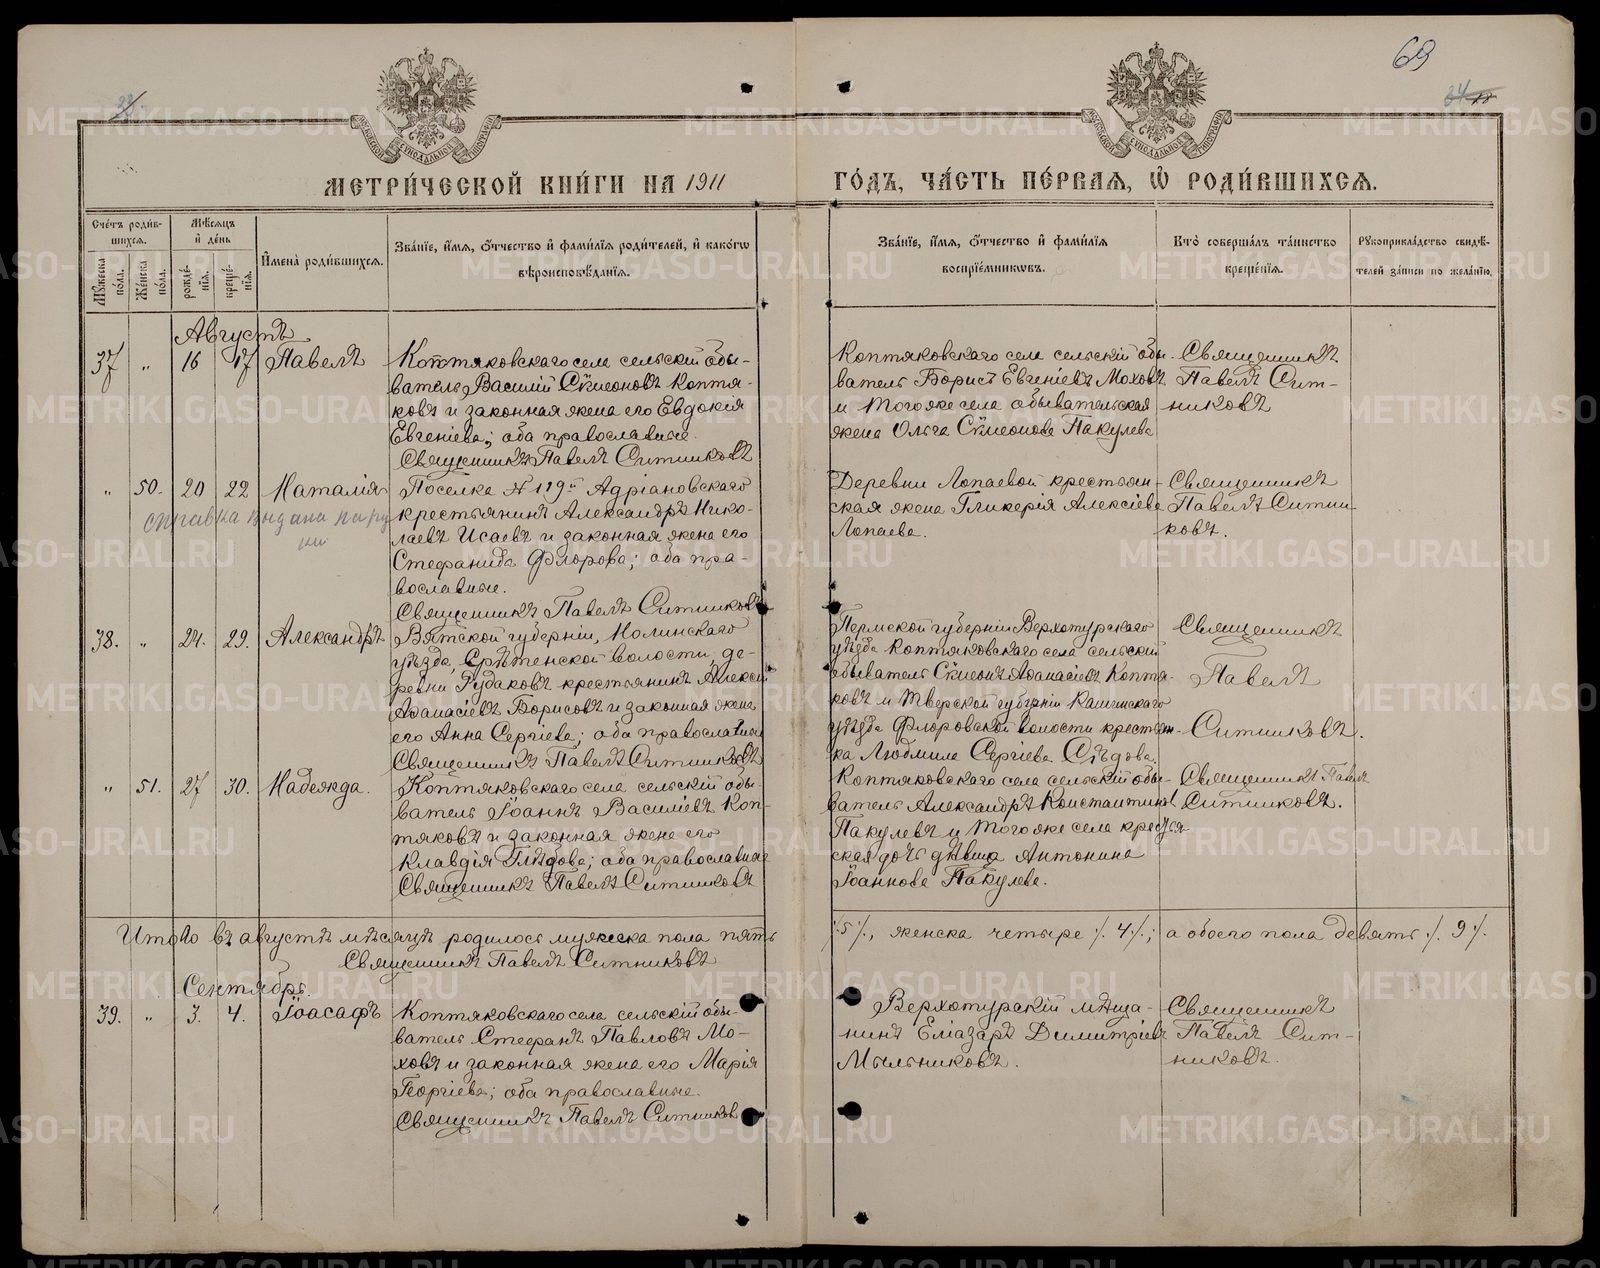 69
МЕТРИ́ЧЕСКОЙ КНИ́ГИ НА 1911
ГО́ДЪ, ЧА́СТЬ ПЕ́РВАЯ, Ѿ РОДИ́ВШИХСЯ.
Сче́тъ роди́в-
шихся.
Мѣ́сяцъ
и де́нь
Мꙋ́жеска по́ла.
Же́нска по́ла.
рожде́нїя.
креще́нїя.
И҆мена̀ роди́вшихся.
Зва́нїе, и҆́мя, ѻ҆́тчество и҆ фами́лїя роди́телей, и҆ како́гѡ
вѣроисповѣ́данїя.
Зва́нїе, и҆́мя, ѻ҆́тчество и҆ фами́лїя
воспрїе́мникѡвъ.
Кто̀ соверша́лъ та́инство
креще́нїя.
Рꙋкоприкла́дство свидѣ́-
телей за́писи по жела́нїю.
Августъ
37 „ 16 17 Павелъ
Коптяковскаго села сельскій обы-
ватель Василій Сѵмеоновъ Коптя-
ковъ и законная жена его Евдокія
Евгеніева; оба православные.
Священникъ Павелъ Ситниковъ
Коптяковскаго села сельскій обы-
ватель Борисъ Евгеніевъ Моховъ
и того же села обывательская
жена Ольга Сѵмеонова Пакулева
Священникъ
Павелъ Сит-
никовъ
„ 50. 20 22 Наталія
справка выдана на ру
ки
Поселка № 119го Адріановскаго
крестьянинъ Александръ Нико-
лаевъ Исаевъ и законная жена его
Стефанида Флорова; оба пра-
вославные.
Священникъ Павелъ Ситниковъ
Деревни Лопаевой крестьян-
ская жена Гликерія Алексіева
Лопаева.
Священникъ
Павелъ Ситни-
ковъ.
38. „ 24. 29. Александръ
Вятской губерніи, Нолинскаго
уѣзда, Срѣтенской волости, де-
ревни Рудаковъ крестьянинъ Алексій
Аѳанасіевъ Борисовъ и законная жена
его Анна Сергіева; оба православные
Священникъ Павелъ Ситниковъ
Пермской губерніи Верхотурскаго
уѣзда Коптяковскаго села сельскій
обыватель Сѵмеонъ Аѳанасіевъ Коптя-
ковъ и Тверской губерніи Кашинскаго
уѣзда Флоровской волости крестьян-
ка Людмила Сергіева Сѣдова.
Священникъ
Павелъ
Ситниковъ.
„ 51. 27 30. Надежда.
Коптяковскаго села сельскій обы-
ватель Іоаннъ Василіевъ Коп-
тяковъ и законная жена его
Клавдія Глѣбова; оба православные
Священникъ Павелъ Ситниковъ
Коптяковскаго села сельскій обы-
ватель Александръ Константиновъ
Пакулевъ и того же села крестья
ская дочь дѣвица Антонина
Іоаннова Пакулева.
Священникъ Павелъ
Ситниковъ.
Итого въ августѣ мѣсяцѣ родилось мужеска пола пять
/.5/., женска четыре /.4/.; а обоего пола девять /.9/.
Священникъ Павелъ Ситниковъ
Сентябрь.
39. „ 3. 4. Іоасафъ
Коптяковскаго села сельскій обы-
ватель Стефанъ Павловъ Мо-
ховъ и законная жена его Марія
Георгіева; оба православные.
Священникъ Павелъ Ситниковъ
Верхотурскій мѣща-
нинъ Еліазаръ Димитріевъ
Мыльниковъ.
Священникъ
Павелъ Сит-
никовъ.